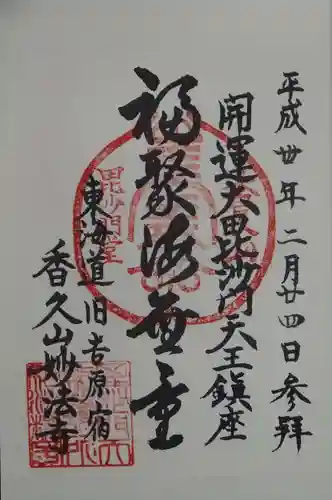 平成丗年二月廿四日参拝
開運大毘沙門天王鎮座
福聚海無量
毘沙門堂
東海道旧吉原宿
香久山妙法寺